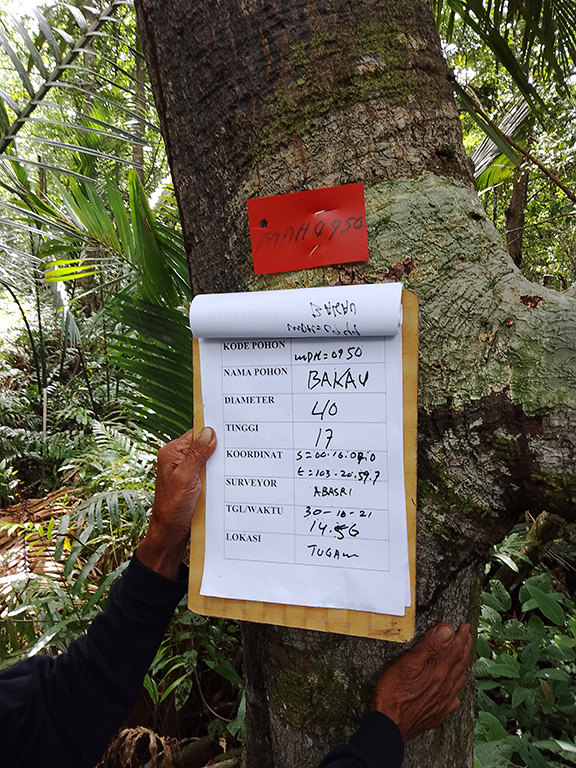 MDH 0950
BAKAU
KODE POHON mDH=0950
NAMA POHON BAKAU
DIAMETER 40
TINGGI 17
KOORDINAT
E=103-20.59.7
SURVEYOR ABASRI
TGL/WAKTU 30-10-21
14.56
LOKASI TUGAM